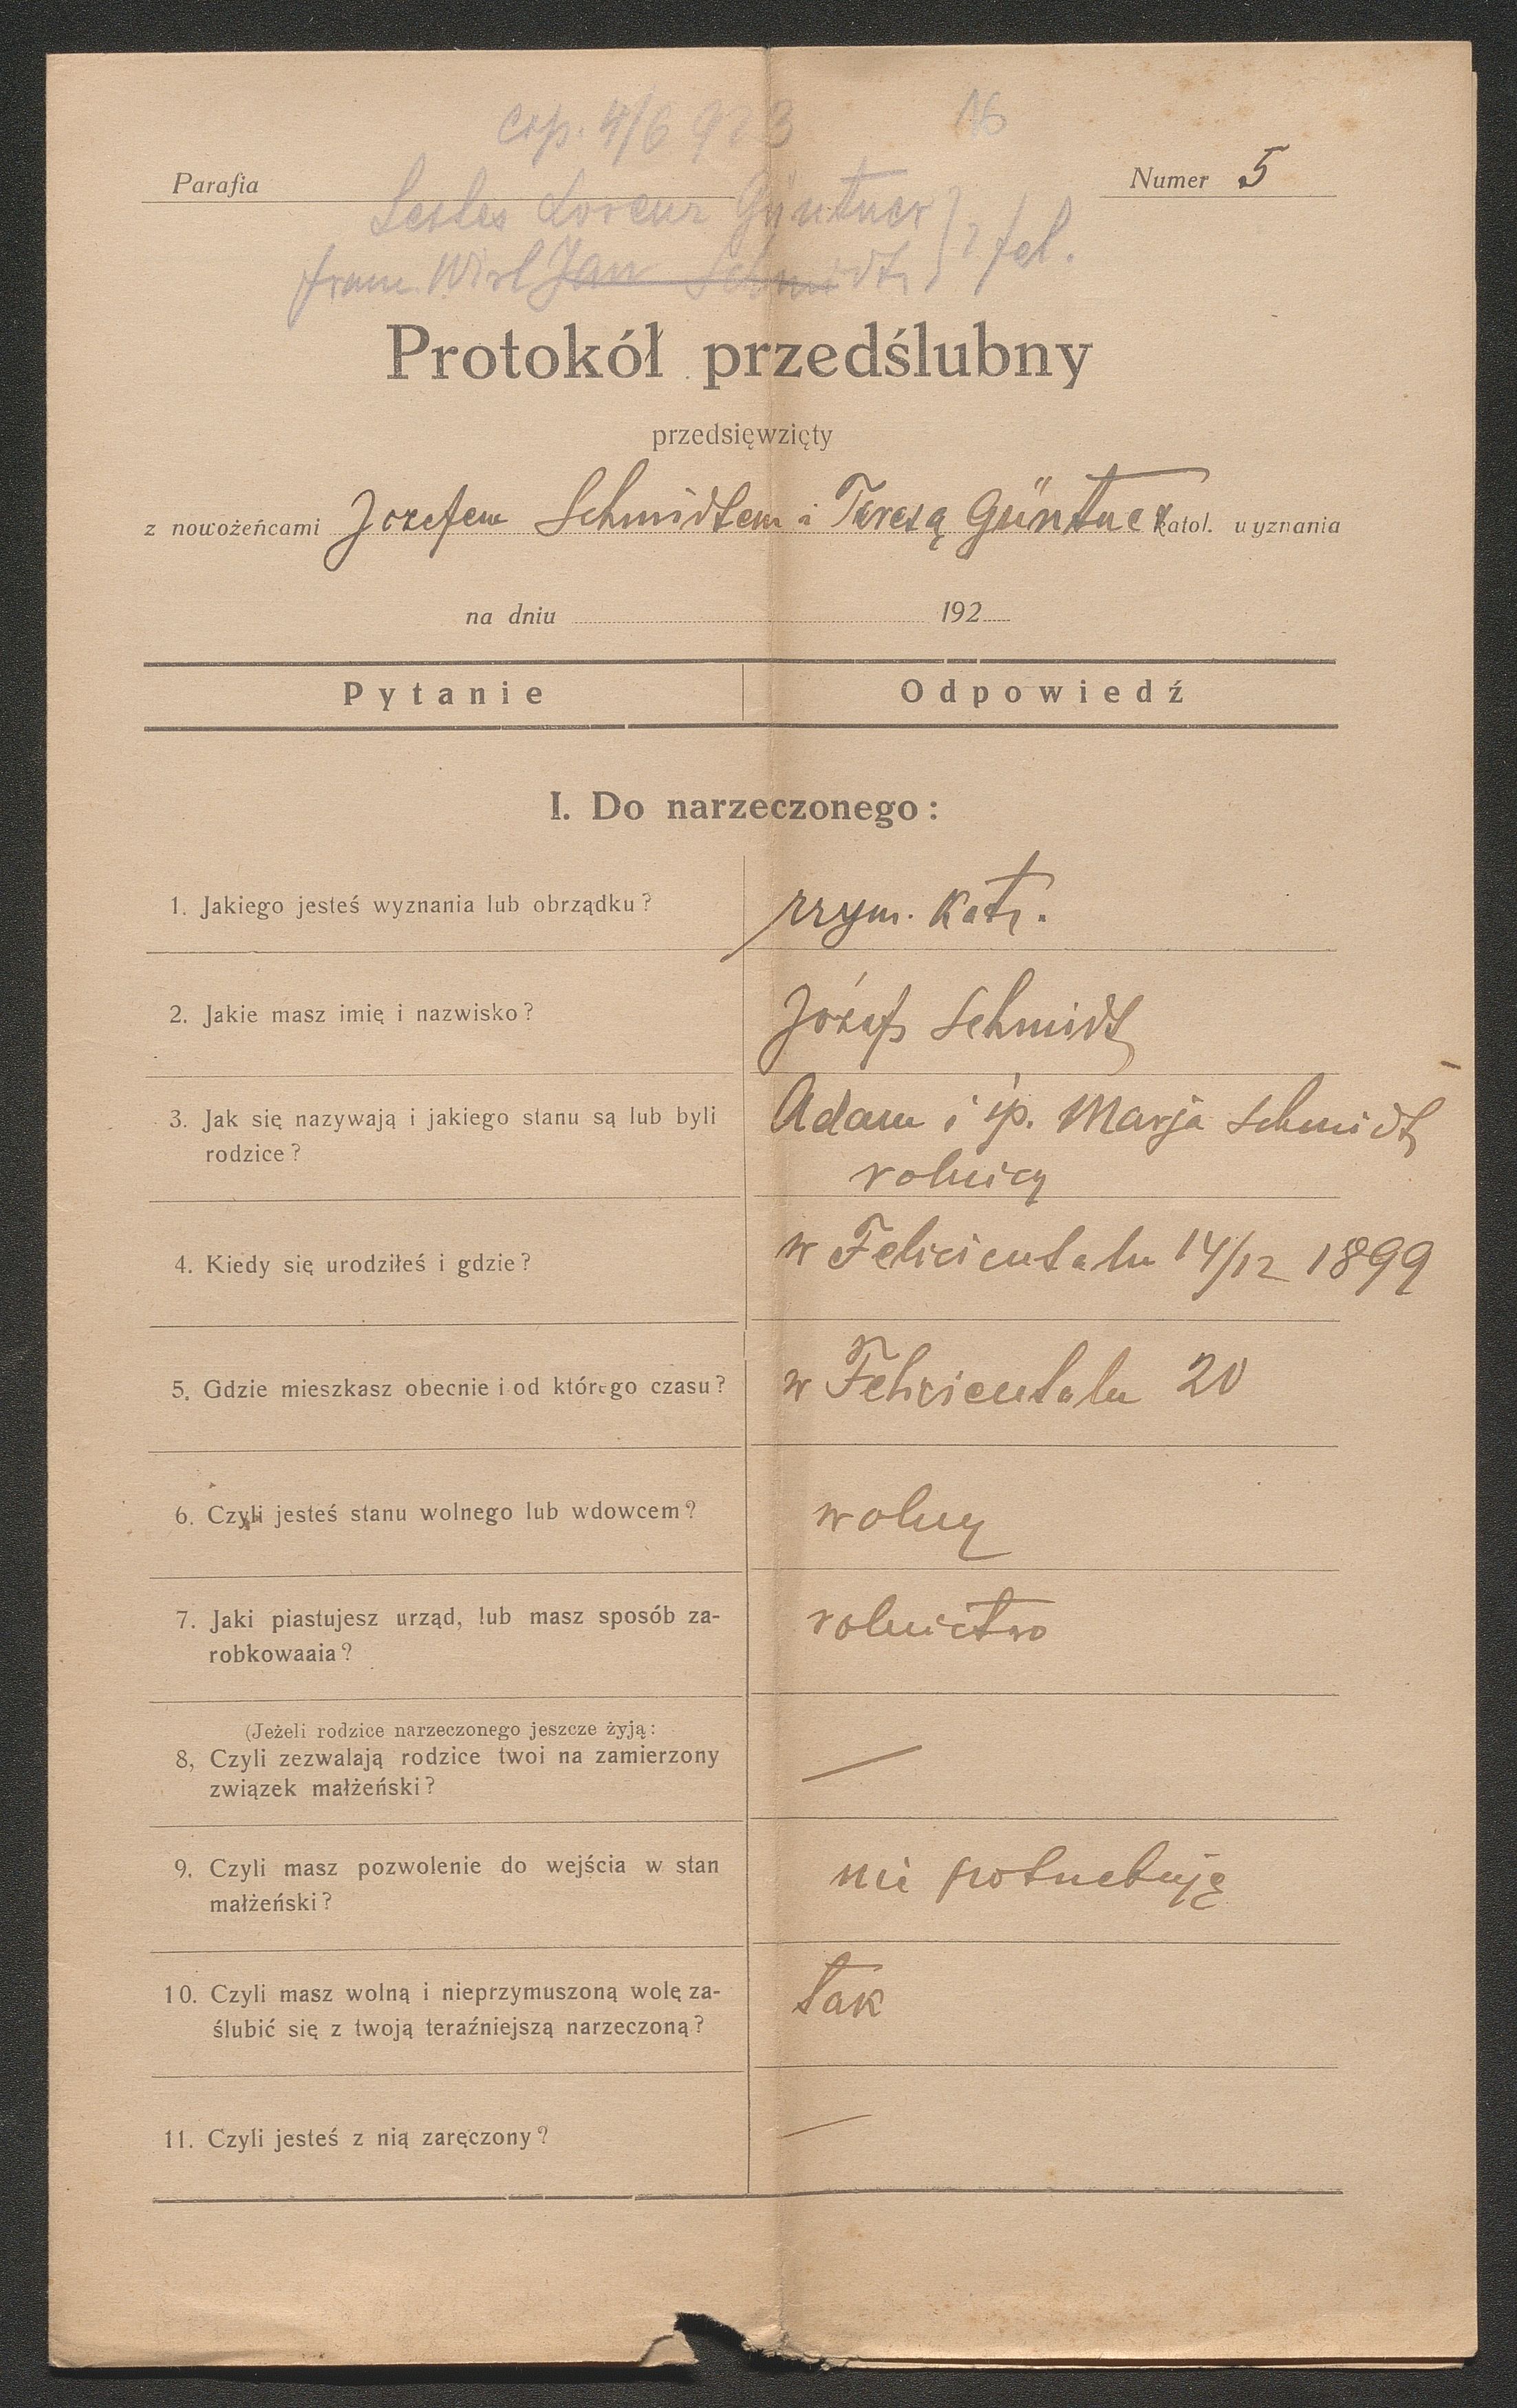 cop. 4/6 923
16
Parafia
Numer 5
Testes Lorenz Güntner
Franc. Wirl Jan Schmidt z Fel.
Protokół przedślubny
przedsięwzięty
z nowożeńcami Jozefem Schmidtem i Teresą Güntner katol. wyznania
na dniu 192
Pytanie
Odpowiedź
I. Do narzeczonego:
1. Jakiego jesteś wyznania lub obrządku?
rzym. kat.
2. Jakie masz imię i nazwisko?
Józef Schmidt
3. Jak się nazywają i jakiego stanu są lub byli
rodzice?
Adam i śp. Marja Schmidt
rolnicy
4. Kiedy się urodziłeś i gdzie?
w Felicientalu 14/12 1899
5. Gdzie mieszkasz obecnie i od którego czasu?
w Felicientalu 20
6. Czyli jesteś stanu wolnego lub wdowcem?
wolny
7. Jaki piastujesz urząd, lub masz sposób za-
robkowaaia?
rolnictwo
(Jeżeli rodzice narzeczonego jeszcze żyją:
8, Czyli zezwalają rodzice twoi na zamierzony
związek małżeński?
—
9. Czyli masz pozwolenie do wejścia w stan
małżeński?
nie potrzebuję
10. Czyli masz wolną i nieprzymuszoną wolę za-
ślubić się z twoją teraźniejszą narzeczoną?
tak
11. Czyli jesteś z nią zaręczony?
—